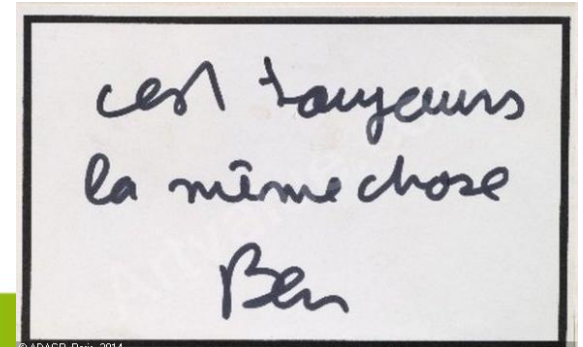 cest toujours
la même chose
Ben
© ADAGP, Paris, 2014